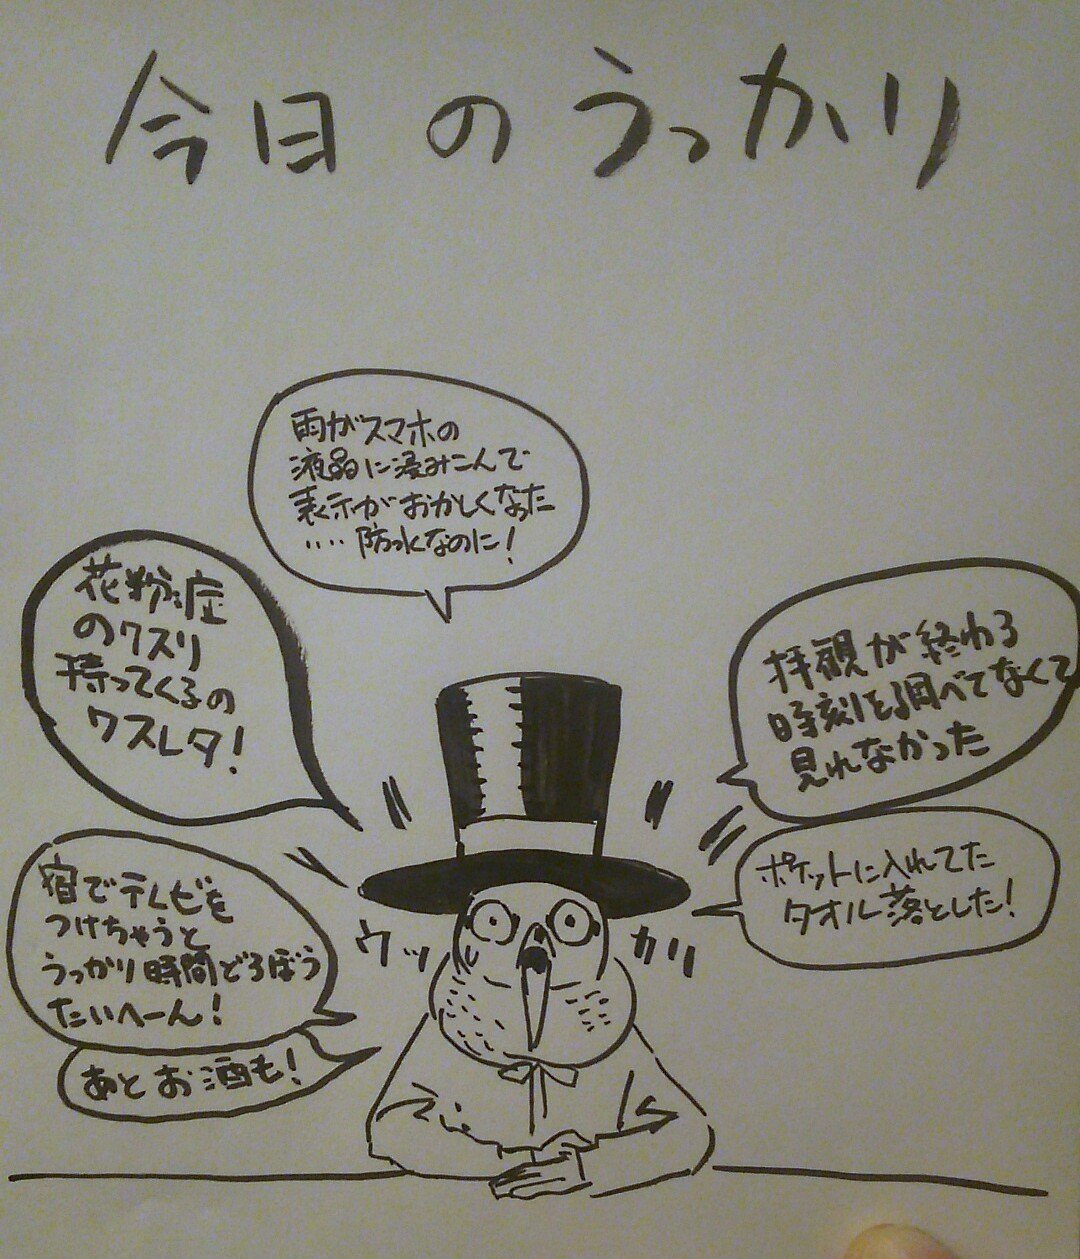 今日のうっかり
雨がスマホの
液晶に浸みこんで
表示がおかしくなった
‥‥防水なのに!
花粉症
のクスリ
持ってくるの
ワスレタ!
拝観が終わる
時刻を調べてなくて
見れなかった
ポケットに入れてた
タオル落とした!
宿でテレビを
つけちゃうと
うっかり時間どろぼう
たいへーん!
あとお酒も!
ウッカリ